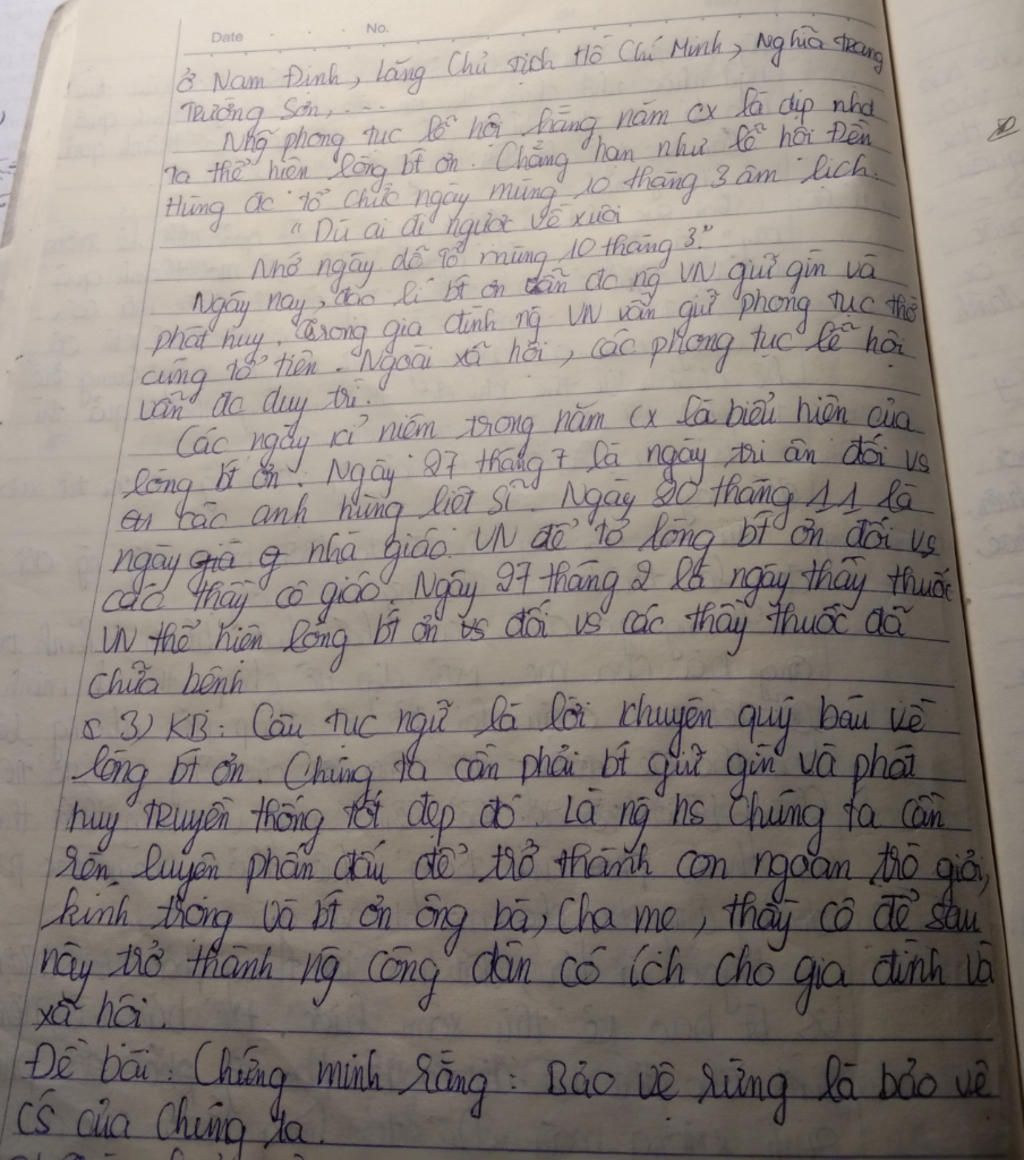 Date No.
ở Nam Định, Lăng Chủ tịch Hồ Chí Minh, Nghĩa trang
Trường Sơn, ...
Nhg phong tục lễ hội hằng năm cx là dịp nhd
ta thể hiện lòng bt ơn. Chẳng hạn như lễ hội Đền
Hùng đc tổ chức ngày mùng 10 tháng 3 âm lịch.
"Dù ai đi ngược về xuôi
Nhớ ngày dỗ tổ mùng 10 tháng 3."
Ngày nay, đạo lí bt ơn vẫn đc ng VN giữ gìn và
phát huy. Trong gia đình ng VN vẫn giữ phong tục thờ
cúng tổ tiên. Ngoài xã hội, các phong tục lễ hội
vẫn đc duy trì.
Các ngày kỉ niệm trong năm cx là biểu hiện của
lòng bt ơn. Ngày 27 tháng 7 là ngày tri ân đối vs
các anh hùng liệt sĩ. Ngày 20 tháng 11 là
ngày nhà giáo VN để tỏ lòng bt ơn đối vs
các thầy cô giáo. Ngày 27 tháng 2 là ngày thầy thuốc
VN thể hiện lòng bt ơn đối vs các thầy thuốc đã
chữa bệnh
3) KB: Câu tục ngữ là lời khuyên quý báu về
lòng bt ơn. Chúng ta cần phải bt giữ gìn và phát
huy truyền thống tốt đẹp đó. Là ng hs chúng ta cần
rèn luyện phấn đấu để trở thành con ngoan trò giỏi,
kính trọng và bt ơn ông bà, cha mẹ, thầy cô để sau
này trở thành ng công dân có ích cho gia đình và
xã hội.
Đề bài: Chứng minh rằng: Bảo vệ rừng là bảo vệ
CS của chúng ta.